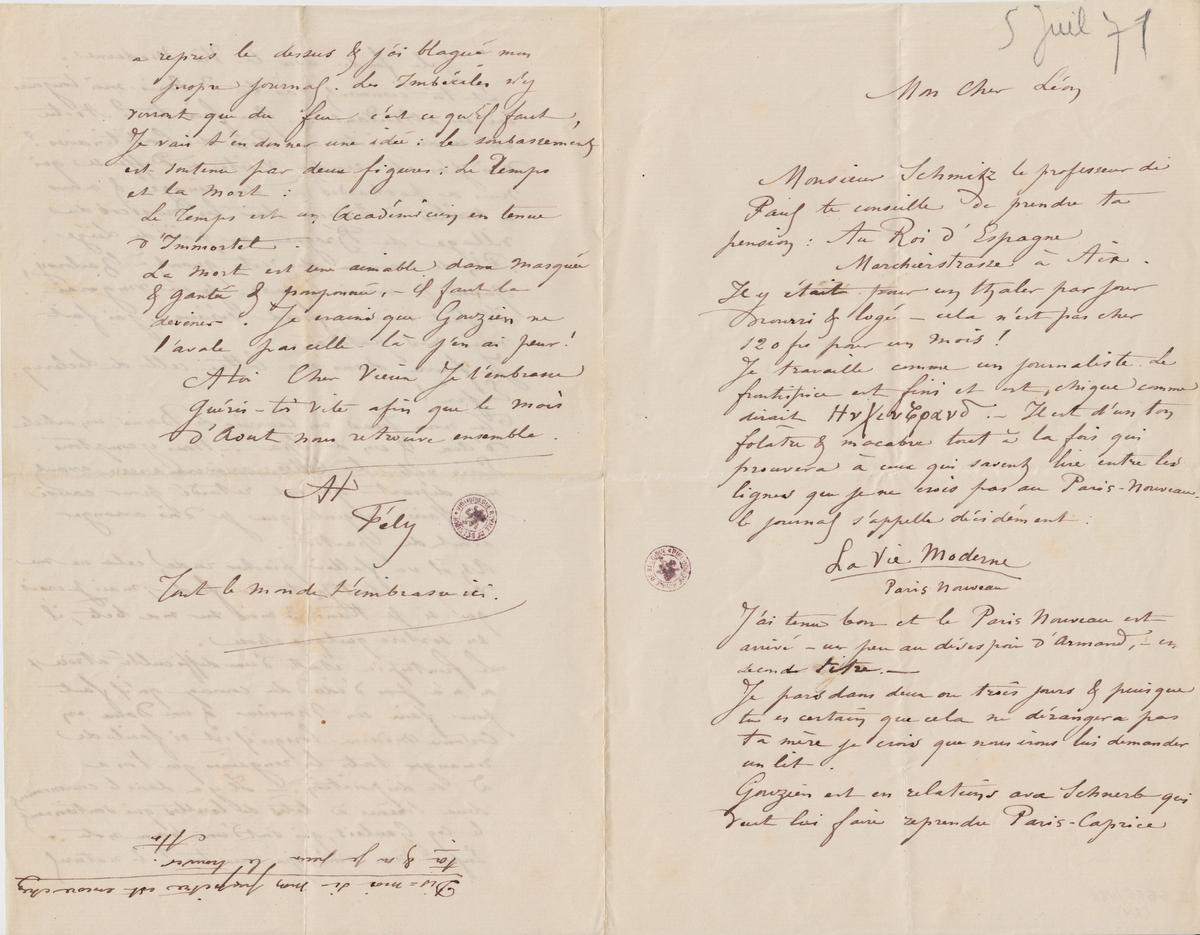 5 Juil 71
Mon Cher Léon
Monsieur Schmitz le professeur de
Paul te conseille de prendre ta
pension : Au Roi d'Espagne
Marchierstrasse à Aix.
Il y était pour un thaler par jour
nourri & logé – cela n'est pas cher
120 frs pour un mois !
Je travaille comme un journaliste. Le
frontispice est fini et est, chique comme
dirait – Il est d'un ton
folâtre & macabre tout à la fois qui
prouvera à ceux qui savent lire entre les
lignes que je ne crois pas au Paris-Nouveau.
le journal s'appelle décidément :
La Vie Moderne
Paris Nouveau
J'ai tenu bon et le Paris Nouveau est
arrivé – un peu au désespoir d'Armand, – en
second titre. –
Je pars dans deux ou trois jours & puisque
tu es certain que cela ne dérangera pas
ta mère je crois que nous irons lui demander
un lit.
Gouzien est en relations avec Schnerb qui
veut lui faire reprendre Paris-Caprice
a repris le dessus & j'ai blagué mon
propre journal. Les Imbéciles n'y
verront que du feu c'est ce qu'il faut,
Je vais t'en donner une idée : le soubassement
est soutenu par deux figures : Le Temps
et la Mort :
Le Temps est un Académicien en tenue
d'Immortel.
La Mort est une aimable dame masquée
& gantée & pomponnée, – il faut la
deviner. Je crains que Gouzien ne
l'avale pas celle-là j'en ai peur !
A toi Cher Vieux Je t'embrasse
Guéris-toi vite afin que le mois
d'Aout nous retrouve ensemble.
At
Fély
Tout le monde t'embrasse ici.
Dis-moi si mon est encore chez
toi & si je puis le trouver.